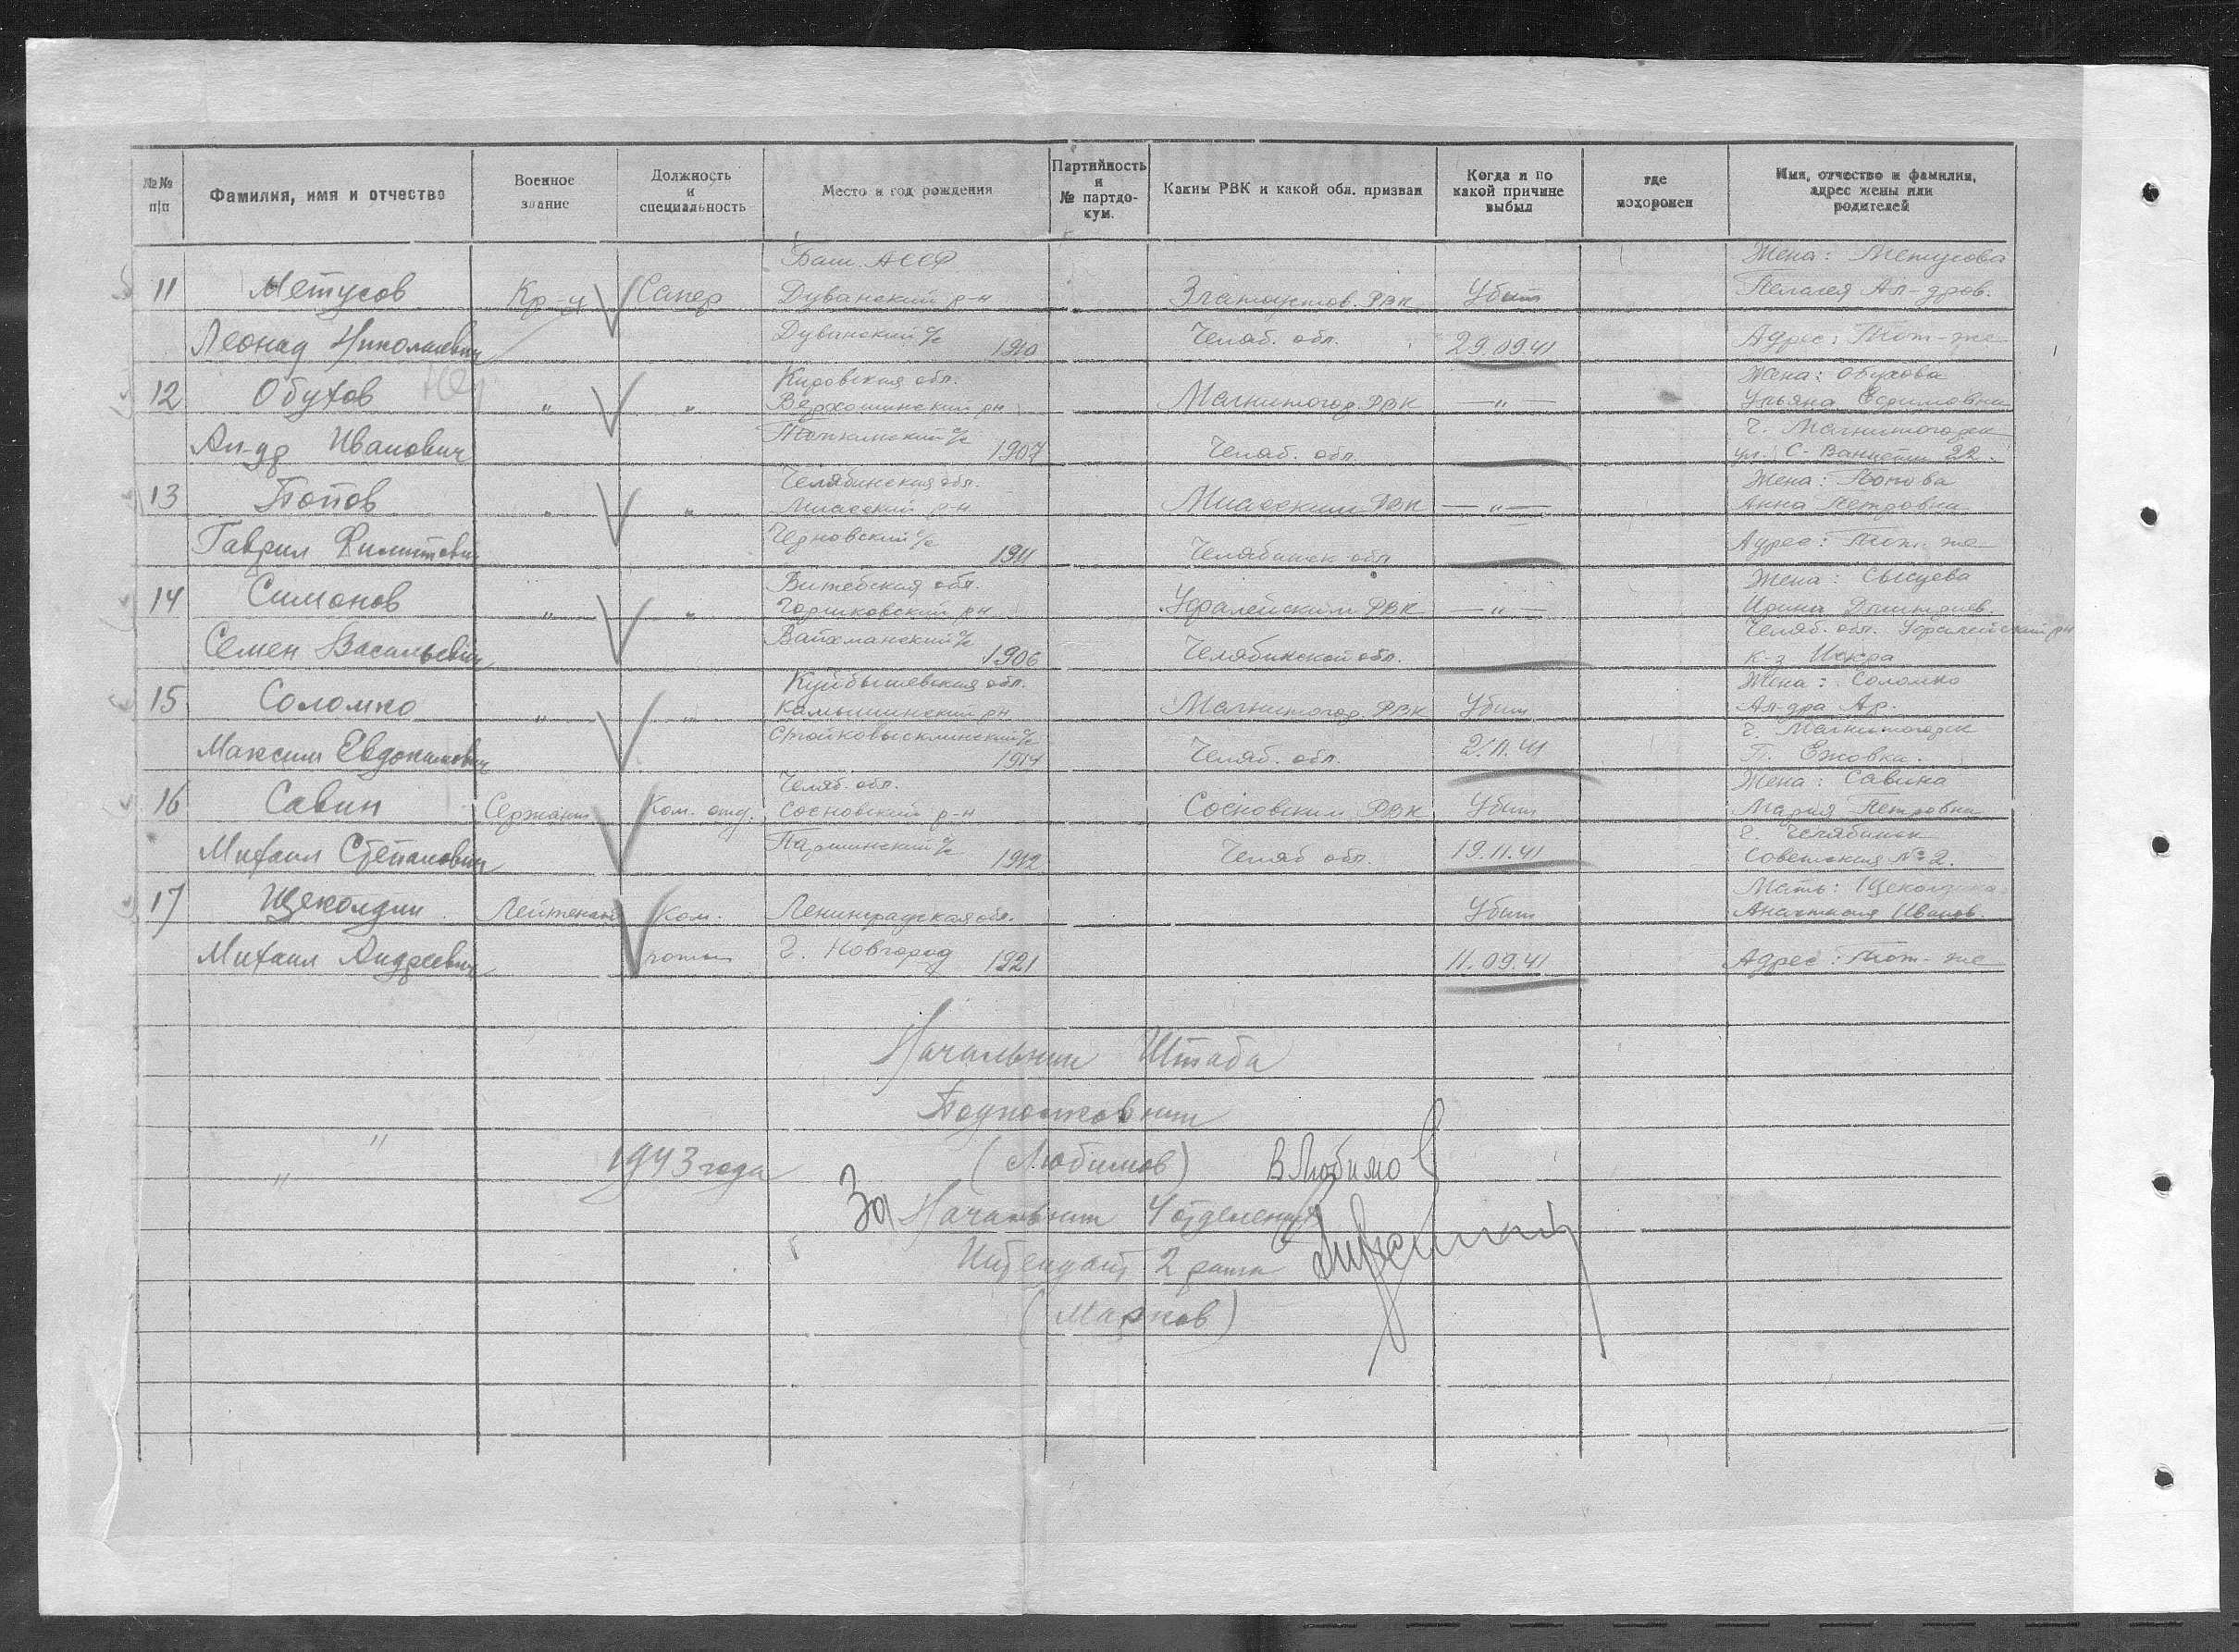 №№ п|п Фамилия, имя и отчество Военное звание Должность и специальность Место и год рождения Партийность и № партдокум. Каким РВК и какой обл. призван Когда и по какой причине выбыл где похоронен Имя, отчество и фамилия, адрес жены или родителей
Баш. АССР Жена: Метусова
11 Метусов Кр-ц Сапер Дуванский р-н Златоустов. РВК Убит Пелагея Ал-дров.
Леонид Николаевич Дуванский с/с 1910 Челяб. обл. 29.09.41 Адрес: Тот-же
Кировская обл. Жена: Обухова
12 Обухов " " Верхошинский рн Магнитогор. РВК —"— Ульяна Ефимовна
г. Магнитогорск
Ал-др Иванович 1907 Челяб. обл. ул. С-Ванцети 22.
Челябинская обл. Жена: Попова
13 Попов " " Миасский р-н Миасским РВК —"— Анна Петровна
Гаврил Филиппович Черновский с/с 1911 Челябинск обл Адрес: Тот-же
Витебская обл. Жена:
14 Симонов " " рн Уфалейским РВК —"— Ирина Дмитриев.
Семен Васильевич Вайхманский с/с 1906 Челябинской обл. Челяб. обл. Уфалейский рн
к-з Искра
Куйбышевская обл. Жена: Соломко
15 Соломко " " Камышинский рн Магнитогор. РВК Убит Ал-дра Ар.
г. Магнитогорск
Максим Евдокимович 1914 Челяб. обл. 2.11.41 П. Ежовка.
Челяб. обл. Жена: Савина
16 Савин Сержант Ком. отд. Сосновский р-н Сосновским РВК Убит Мария Петровна
г. Челябинск
Михаил Степанович Паршинский с/с 1912 Челяб обл. 19.11.41 Советская №2.
Мать: Щеколдина
17 Щеколдин Лейтенант Ком. Ленинградская обл. Убит Анастасия Иванов
Михаил Андреевич роты г. Новгород 1921 11.09.41 Адрес: Тот-же
Начальник Штаба
Подполковник
" " 1943 года (Любимов) ВЛюбимов
За Начальник 4 отделения
Интендант 2 ранга
(Марков)